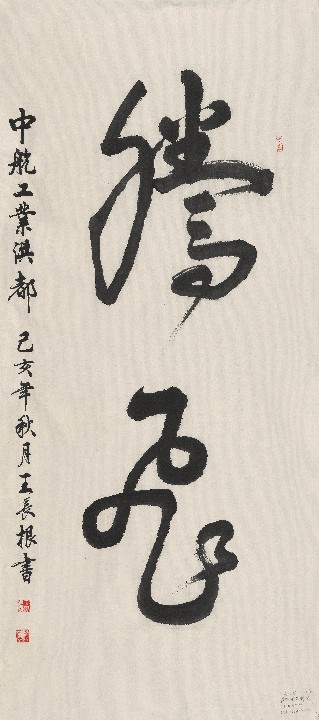 騰飛
中航工业滨都 己亥年秋月王長根書